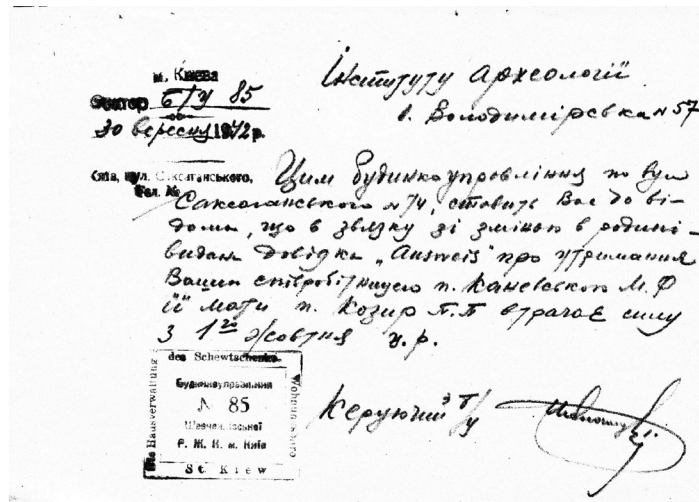 м. Києва
Сектор Б/У 85
30 вересня 1942 р.
Київ, вул. Саксаганського,
Тел. №
Інституту Археології
в. Володимірська № 57
Цим будинкоуправління по вул
Саксаганського № 74, ставить Вас до ві-
дома, що в звязку зі зміною в родині -
видана довідка „Ausweis" про утримання
Вашим співробітницею п. Каневською М. Ф
її мати п. Козир П. П втрачає силу
з 1го жовтня ц. р.
des Schewtschenko-
Die Hausverwaltung
Wohnungsbüro
Будинкоуправління
№ 85
Шевченківської
Р. Ж. К. м. Київ
St. Kiew
Керуючий Б/У